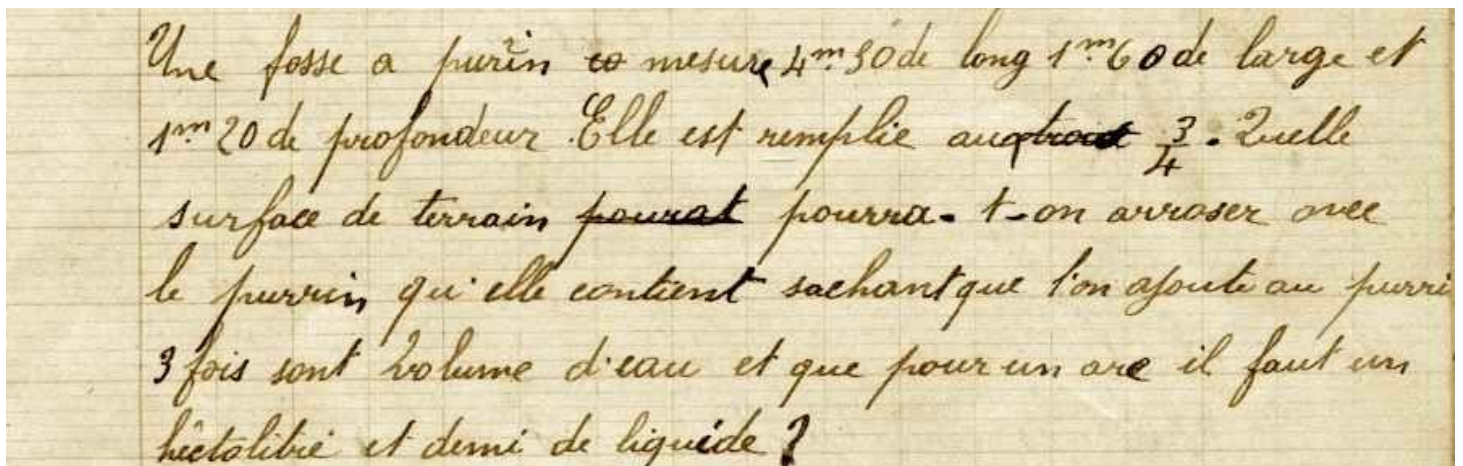 Une fosse a purin mesure 4m.50 de long 1m.60 de large et
1m.20 de profondeur. Elle est remplie aux 3/4. Quelle
surface de terrain pourat pourra-t-on arroser avec
le purrin qu'elle contient sachant que l'on ajoute au purri
3 fois sont volume d'eau et que pour un are il faut un
hectolitre et demi de liquide ?